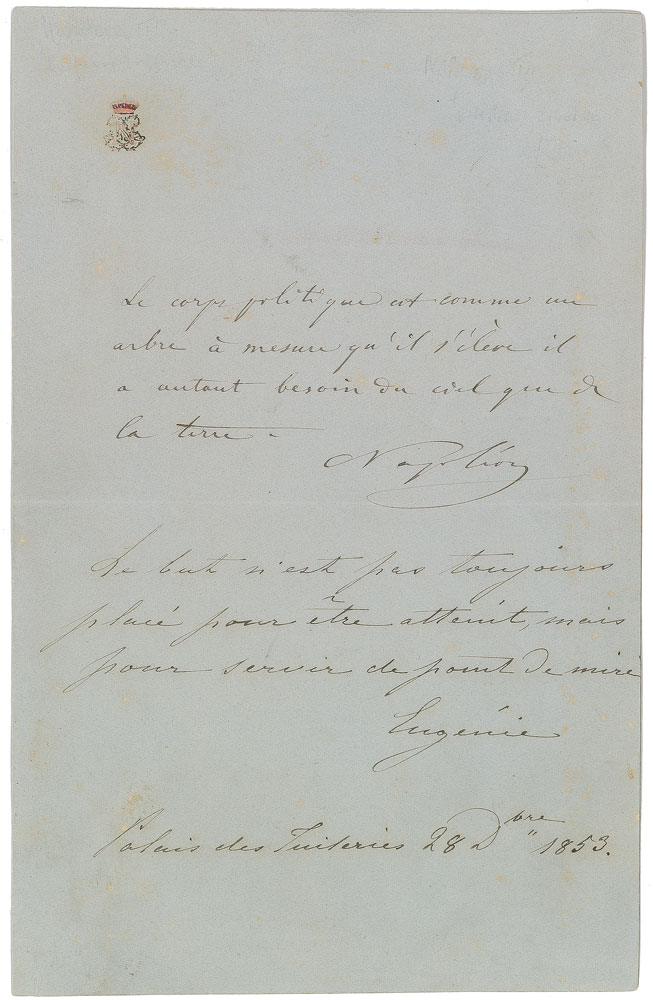 Le corps politique est comme un
arbre à mesure qu'il s'élève il
a autant besoin du ciel que de
la terre -
Napoléon
Le but n'est pas toujours
placé pour être atteint, mais
pour servir de point de mire
Eugénie
Palais des Tuileries 28 Dbre 1853.